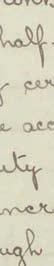 half.
cer
e acc
uty
ncr
ugh